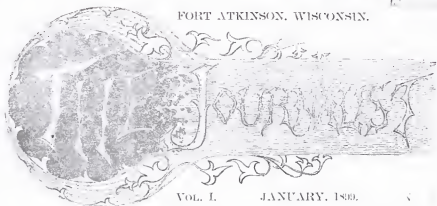 FORT ATKINSON, WISCONSIN.
THE JOURNALIST
VOL. I. JANUARY, 1899.